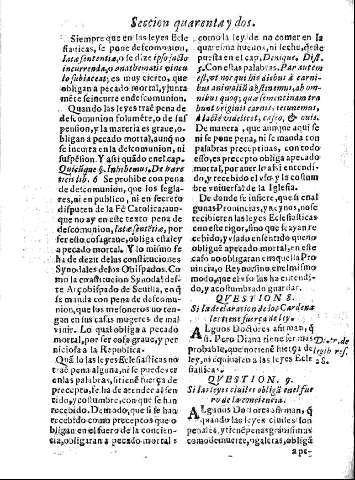 Seccion quarenta y dos.
Siempre que en las leyes Ecle
siasticas, se pone descomunion,
latæ sententiæ, o se dize ipso facto
incurrenda, o anathematis vinculo
subiaceat; es muy cierto, que
obligan à pecado mortal, y junta
mēte se incurre en descomunion.
Quando las leyes traē pena de
descomunion solumēte, o de sus
pension, y la materia es graue, o
bligan à pecado mortal, aunq̄ no
se incurra en la descomunion, ni
suspēsion. Y asi quādo el cap.
Quicūque §. Inhibemus, De hære
ticis lib. 6 Se prohibe con pena
de descomunion, que los segla-
res, ni en publico, ni en secreto
disputen de la Fè Catolica; aun-
que no ay en este texto pena de
descomunion, latæ sentētiæ, por
ser esto cosa graue, obliga esta ley
a pecado mortal. Y lo mismo se
ha de dezir de las constituciones
Synodales de los Obispados. Co
mo la constitucion Synodal des-
te Arçobispado de Seuilla, en q̄
se manda con pena de descomu-
nion, que los mesoneros no ten-
gan en sus casas mugeres de mal
viuir. Lo qual obliga a pecado
mortal, por ser cosa graue, y per
niciosa a la Republica.
Quā las leyes Eclesiasticas no
traē pena alguna, ni se puede ver
en las palabras, si tiene fuerça de
precepto, se ha de atender a sen
tido, y costumbre, con que se han
recebido. De modo, que si se han
recebido como preceptos que o
bligan en el fuero de la concien-
cia, obligaran a pecado mortal:
como la ley de no comer en la
quaresma hueuos, ni lechu, deste
puesta en el cap. Denique. Dist.
5. Con estas palabras. Par autem
est, vt nos qui his diebus à carni-
bus animaliū abstinemus, ab om-
nibus quoq; quæ sementinam tra
hunt originē carnis, ieiunemus,
à lacte videlicet, caseo, & ouis.
De manera, que aunque aqui se
ni se pone pena, ni se manda con
palabras preceptiuas, con todo
esso, es precepto obliga apecado
mortal, por auer le asi entendi-
do, y recebido el vso y la costum
bre vniuersal de la Iglesia.
De donde se infiere, que si en al
gunas Prouincias, y Reynos, no se
recibieren las leyes Eclesiasticas
con este rigor, sino que se ayan re
cebido, y vsado en sentido que no
obliguē apecado mortal, en este
caso no obligaran en aquella Pro
uincia, o Reyno sino en el mismo
modo, que en ellos las ha entendi-
do, y acostumbrado guardar.
QVESTION 8.
Si la declaracion de los Cardena
les tienē fuerça de ley.
ALgunos Doctores afirman, q̄
si. Pero Diana tiene ser mas
probable, que no tienē fuerça de
ley, ni equiualen a las leyes Ecle.
QVESTION. 9.
Si las leyes ciuiles obligā en el fue
ro de la conciencia.
ALgunos Doctores afirman, q̄
quando las leyes ciuiles son
penales, y tienē penas grauissimas
como de muerte, o galeras, obligā
a pe-